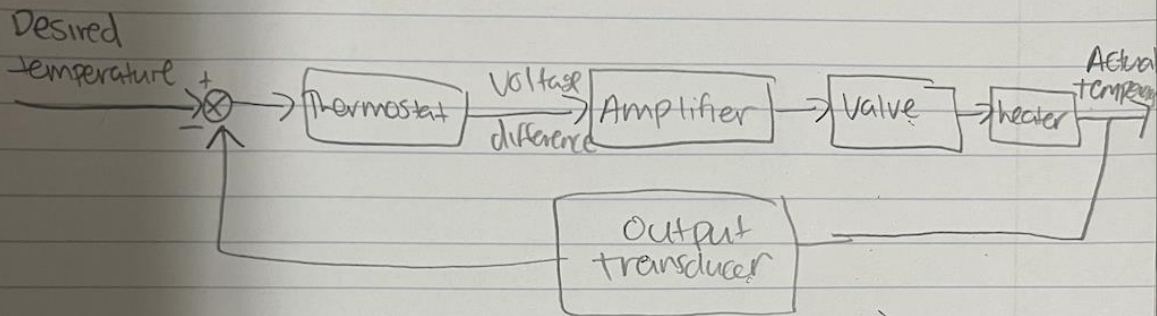 Desired
temperature
+
−
Thermostat
Voltage
difference
Amplifier
Valve
heater
Actual
Output
transducer